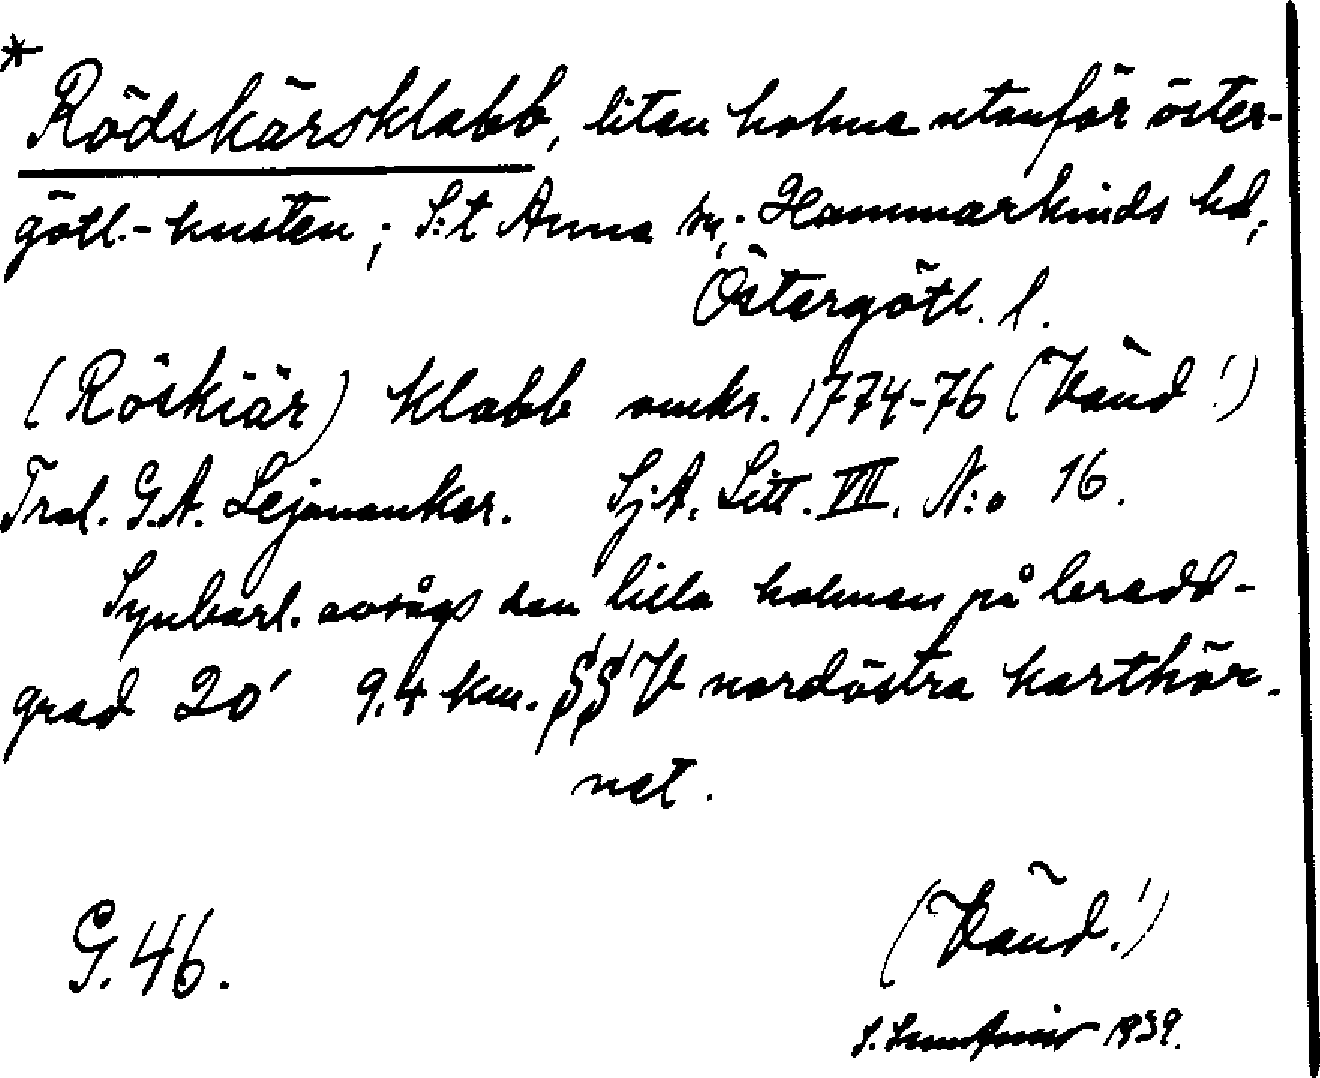 *
Rödskärsklabb, liten holme utanför öster-
götl.-kusten; S:t Anna sn, Hammarkinds hd,
Östergötl. l.
(Röskiär) Klabb omkr. 1774-76 (Vänd!)
Trol. G.A. Lejonankar. Sj.A. Litt. VIII. N:o 16.
Synbarl. avsågs den lilla holmen på bredd-
grad 20' 9,4 km. §§ V nordöstra karthör-
net.
G. 46.
(Vänd!)
S. 1939.